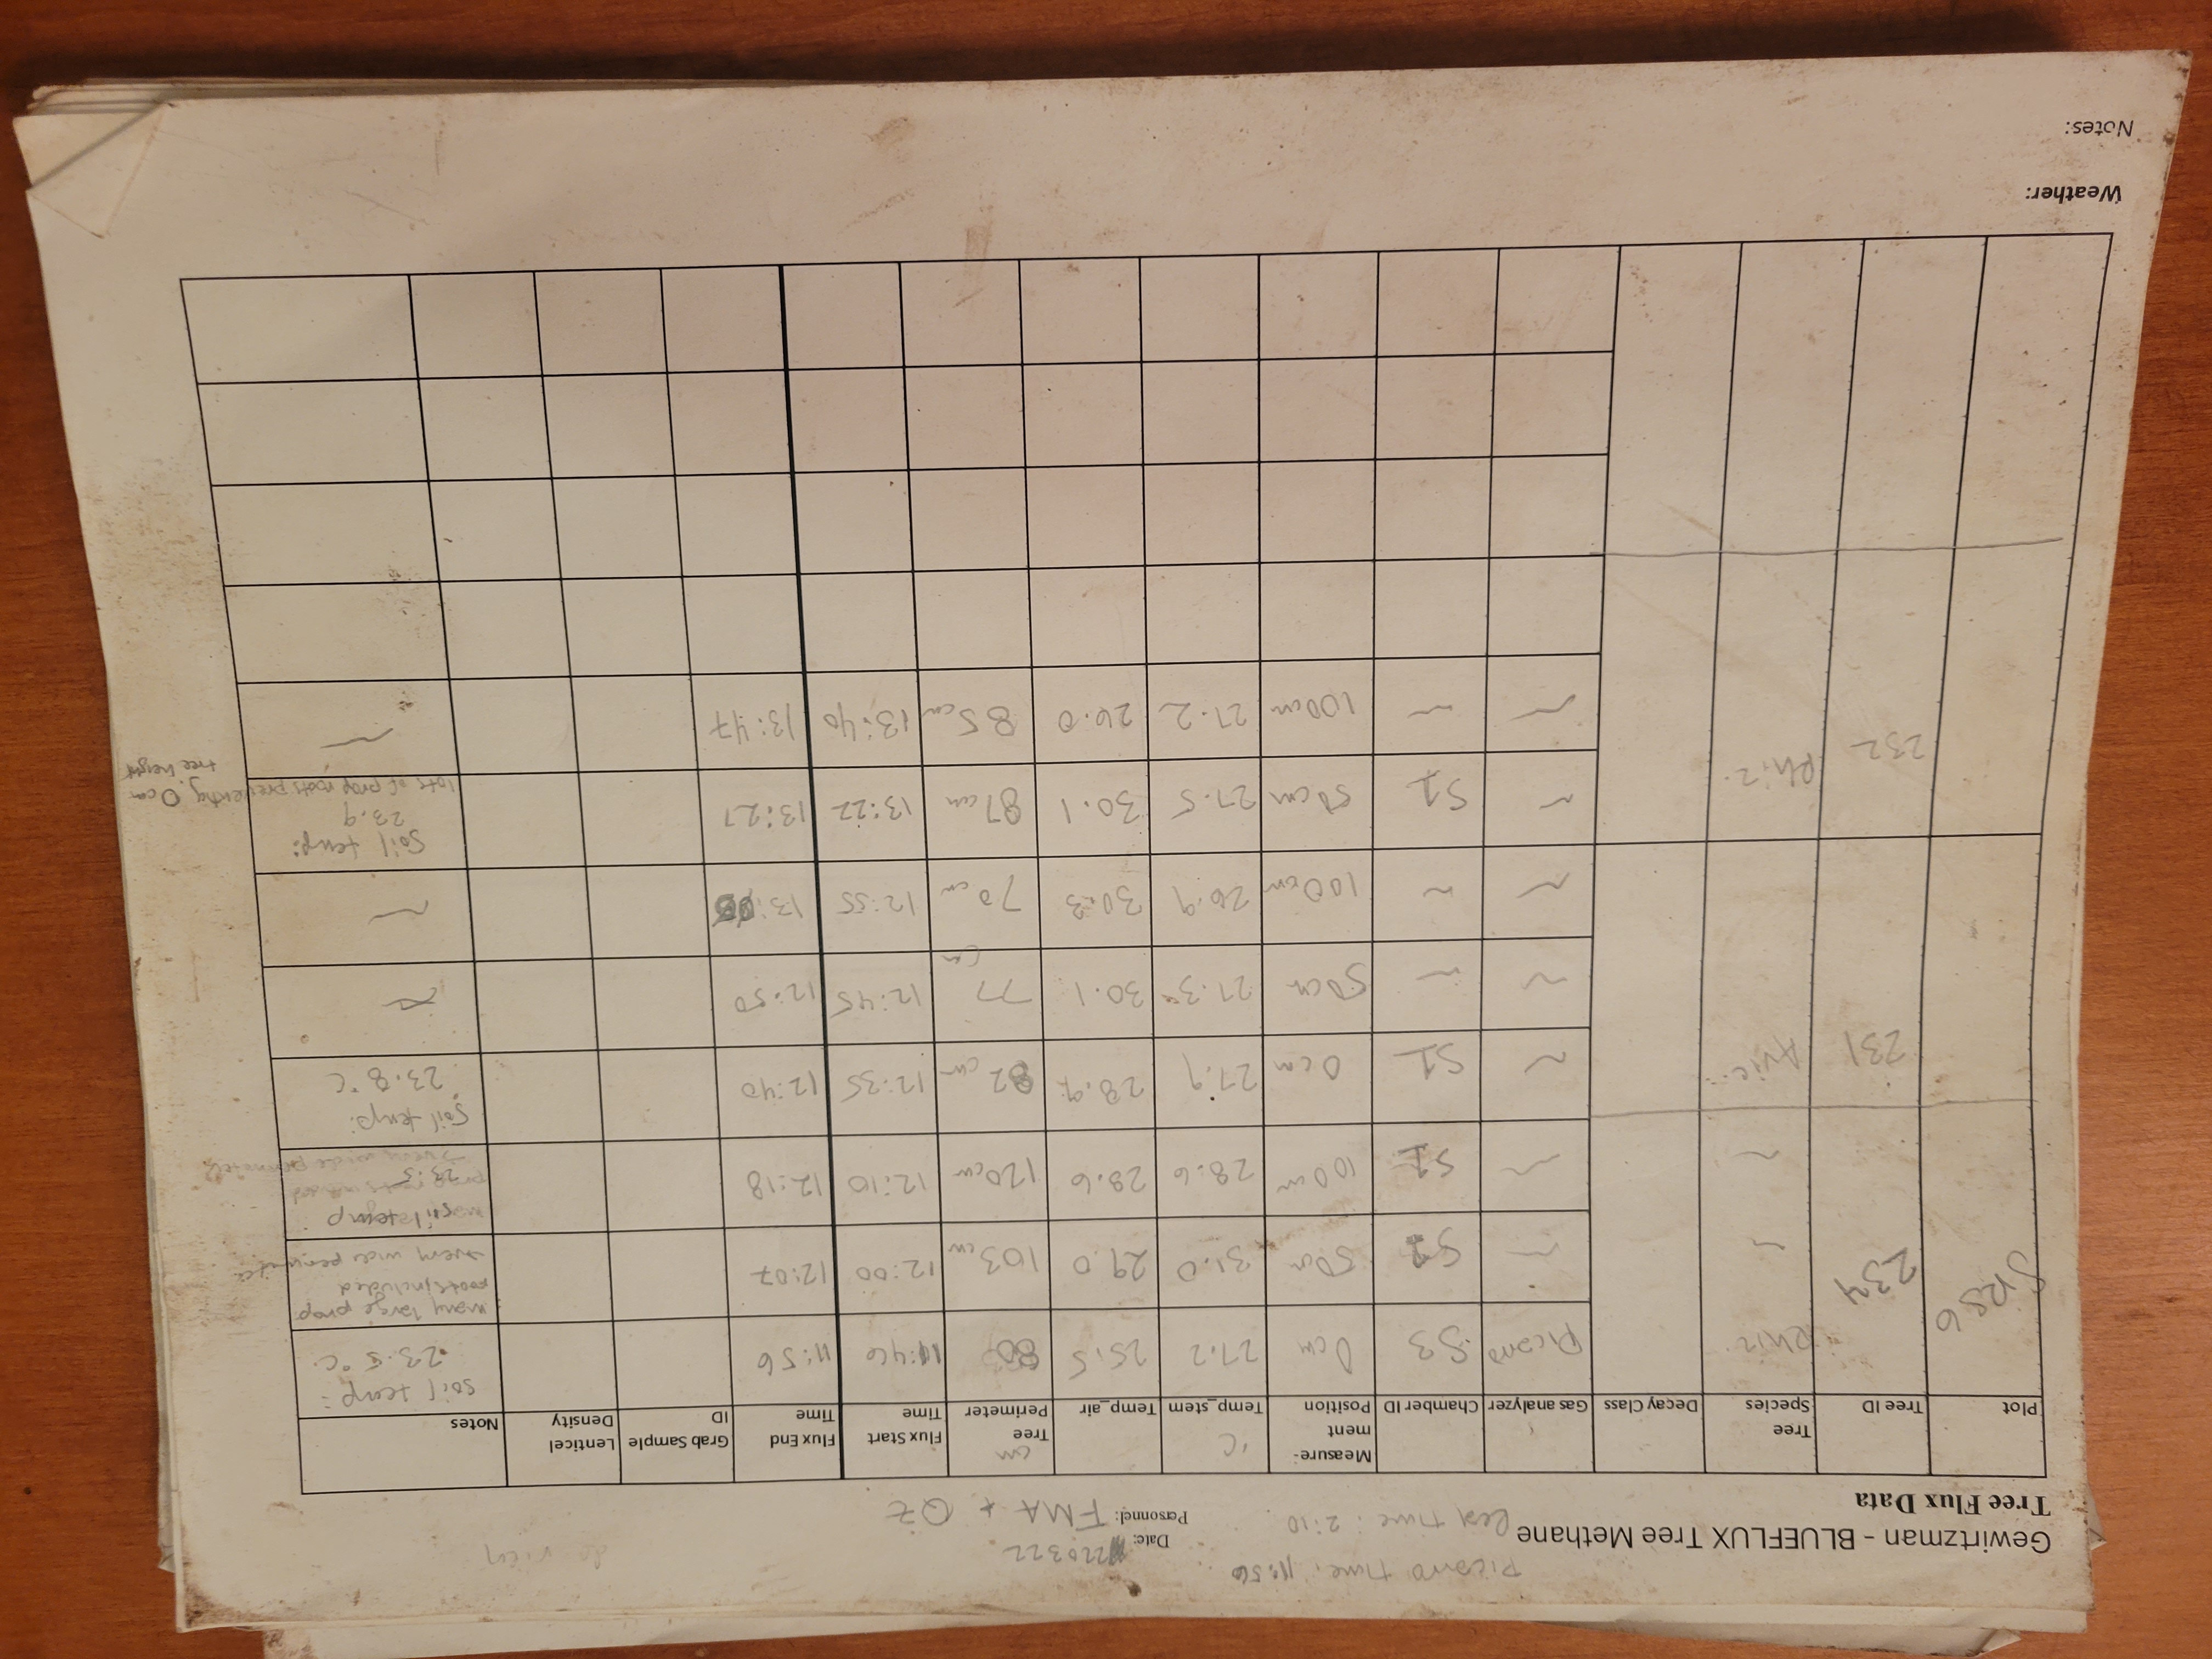 Picarro time: 11:56
Gewirtzman - BLUEFLUX Tree Methane
Real time: 2:10
Date: 220322
Tree Flux Data
Personnel: FMA + QZ
°C
cm
Plot Tree ID Tree Species Decay Class Gas analyzer Chamber ID Measure-ment Position Temp_stem Temp_air Tree Perimeter Flux Start Time Flux End Time Grab Sample ID Lenticel Density Notes
Rhiz. Picarro S3 0cm 27.2 25.5 11:46 11:56 soil temp: 23.5 °C
~ ~ S1 50cm 31.0 29.0 103cm 12:00 12:07 many large prop roots included
~ ~ S1 100cm 28.6 28.6 120cm 12:10 12:18 soil temp 23.5
231 Avic.. ~ S1 0cm 27.9 28.9 82cm 12:35 12:40 Soil temp: 23.8 °C
~ ~ 50cm 27.3 30.1 77cm 12:45 12:50 ~
~ ~ 100cm 26.9 30.3 70cm 12:55 ~
232 Rhiz. ~ S1 50cm 27.5 30.1 87cm 13:22 13:27 Soil temp: 23.9 lots of prop roots preventing 0cm tree height
~ ~ 100cm 27.2 26.0 85cm 13:40 13:47 ~
Weather:
Notes: